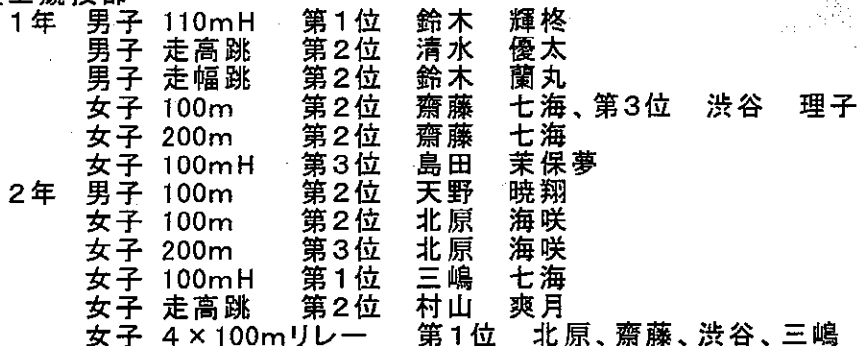 1年 男子 110mH 第1位 鈴木 輝柊
男子 走高跳 第2位 清水 優太
男子 走幅跳 第2位 鈴木 蘭丸
女子 100m 第2位 齋藤 七海、第3位 渋谷 理子
女子 200m 第2位 齋藤 七海
女子 100mH 第3位 島田 茉保夢
2年 男子 100m 第2位 天野 暁翔
女子 100m 第2位 北原 海咲
女子 200m 第3位 北原 海咲
女子 100mH 第1位 三嶋 七海
女子 走高跳 第2位 村山 爽月
女子 4×100mリレー 第1位 北原、齋藤、渋谷、三嶋